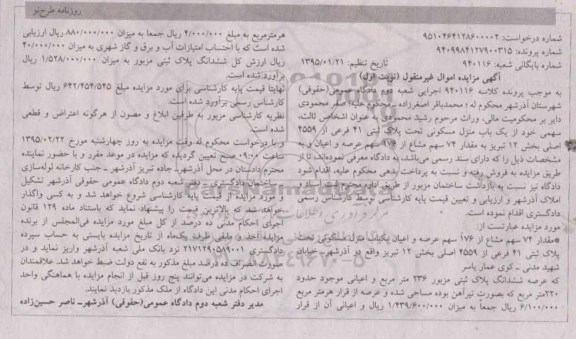 روزنامه طرح نو
شماره درخواست: 9510464128600002
شماره پرونده: 9409984127900315
شماره بایگانی شعبه: 940116
تاریخ تنظیم: 1395/01/21
آگهی مزایده اموال غیرمنقول (نوبت اول)
به موجب پرونده کلاسه 940116 اجرایی شعبه دوم دادگاه عمومی(حقوقی)
شهرستان آذرشهر محکوم له: محمدباقر اصغرزاده - محکوم علیه: صفر محمودی
دایر بر محکومیت مالی، وراث مرحوم رشید محمودی به عنوان اشخاص ثالث،
سهمی خود از یک باب منزل مسکونی تحت پلاک ثبتی 41 فرعی از 4559
اصلی بخش 12 تبریز به مقدار 74 سهم مشاع از 176 سهم عرصه و اعیان و به
مشخصات ذیل را که دارای سند رسمی می‌باشد، به دادگاه معرفی نموده‌اند، تا از
طریق مزایده به فروش رفته و نسبت به پرداخت بدهی محکوم علیه، اقدام شود
دادگاه نیز نسبت به بازداشت ساختمان مزبور از طریق
املاک آذرشهر و ارزیابی و تعیین قیمت پایه کارشناسی توسط کارشناس رسمی
دادگستری اقدام نموده است.
مورد مزایده عبارتست از:
*مقدار 74 سهم مشاع از 176 سهم عرصه و اعیان یکباب منزل مسکونی تحت
پلاک ثبتی 41 فرعی از 4559 اصلی بخش 12 تبریز واقع در آذرشهر- خیابان
شهید مدنی ـ کوی عمار یاسر
که عرصه ششدانگ پلاک ثبتی مزبور 236 متر مربع و اعیانی موجود حدود
220متر مربع که بصورت تیرآهن بوده مساحی شده و عرصه از قرار هرمتر مربع
6/100/000 ریال جمعاً به میزان 1/439/600/000 ریال و اعیانی آن از قرار
هرمترمربع به مبلغ 4/000/000 ریال جمعا به میزان 880/000/000 ریال ارزیابی
شده است که با احتساب امتیازات آب و برق و گاز شهری به میزان 40/000/000
ریال ارزش کل ششدانگ پلاک ثبتی مزبور به میزان 1/528/000/000 ریال
برآورد شده است.
نهایتا قیمت پایه کارشناسی برای مورد مزایده مبلغ 642/454/545 ریال توسط
کارشناس رسمی برآورد شده است.
نظریه کارشناسی مزبور به طرفین ابلاغ و مصون از هرگونه اعتراض و قطعی
شده است
و با درخواست محکوم له وقت مزایده به روز چهارشنبه مورخ 1395/02/22
ساعت 09:00 صبح تعیین گردیده که مزایده در موعد مقرر و با حضور نماینده
محترم دادستان در محل آذرشهر- جاده تبریز آذرشهر ـ جنب کارخانه لوله‌سازی
شعبه دوم دادگاه عمومی حقوقی آذرشهر تشکیل
و مورد مزایده از قیمت پایه کارشناسی شروع خواهد شد و به کسی واگذار
خواهد شد که بالاترین قیمت را پیشنهاد نماید که باستناد ماده 129 قانون
اجرای احکام مدنی ده درصد از کل مبلغ مورد مزایده فی‌المجلس از برنده
مزایده اخذ و مابقی ظرف یک‌ماه از تاریخ مزایده بایستی به حساب سپرده
دادگستری 2171290589001 نزد بانک ملی شعبه آذرشهر واریز نماید و در
صورت انصراف ده درصد مبلغ مذکور به نفع دولت ضبط خواهد شد. علاقمندان
به شرکت در مزایده می‌توانند پنج روز قبل از انجام مزایده با هماهنگی واحد
اجرای احکام مدنی این دادگاه از ملک مذکور بازدید نمایند.
مدیر دفتر شعبه دوم دادگاه عمومی(حقوقی) آذرشهر- ناصر حسین‌زاده